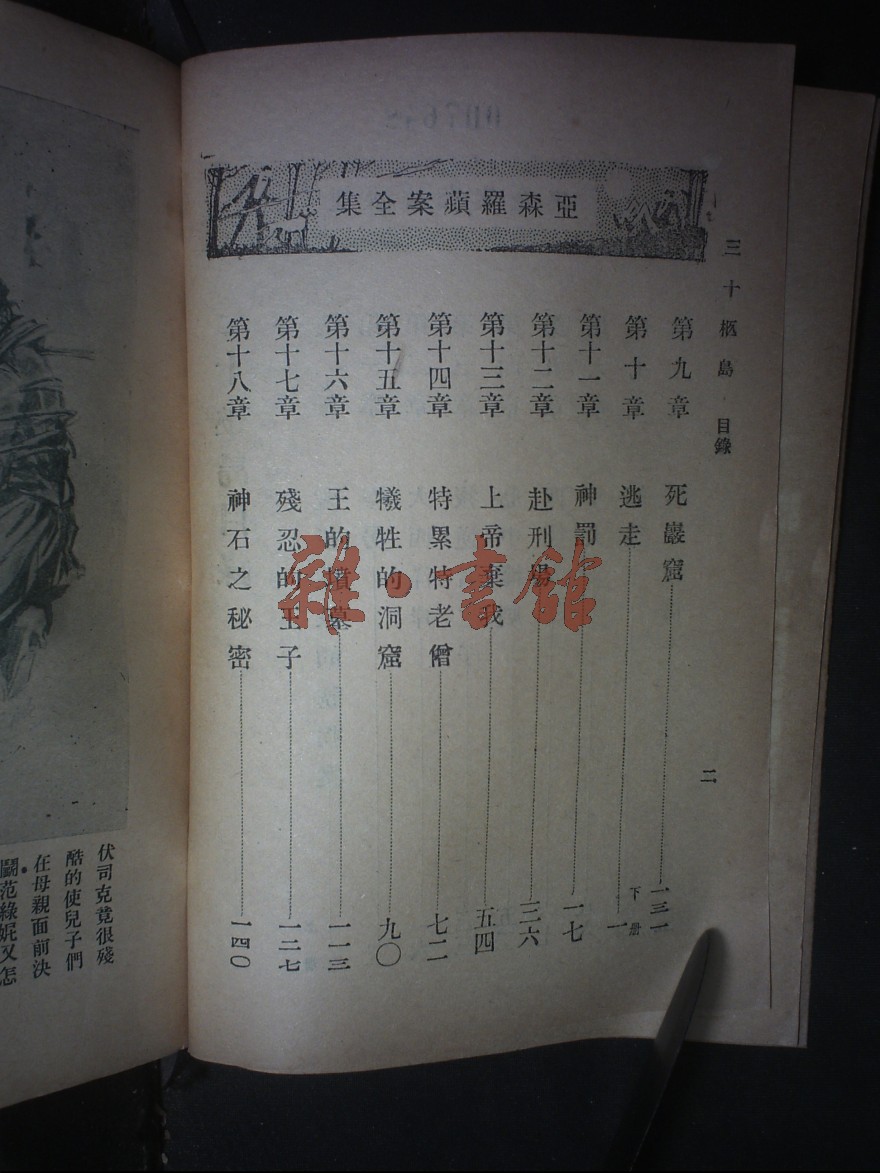 亞森羅蘋案全集
三十柩島 目錄
二
第九章 死巖窟 一三一
第十章 逃走 下册 一
第十一章 神罰 一七
第十二章 赴刑場 三六
第十三章 上帝棄我 五四
第十四章 特累特老僧 七二
第十五章 犧牲的洞窟 九〇
第十六章 王的墳墓 一一三
第十七章 殘忍的王子 一二七
第十八章 神石之秘密 一四〇
雜·書館
伏司克竟很殘
酷的使兒子們
在母親面前決
鬭范綠妮又怎